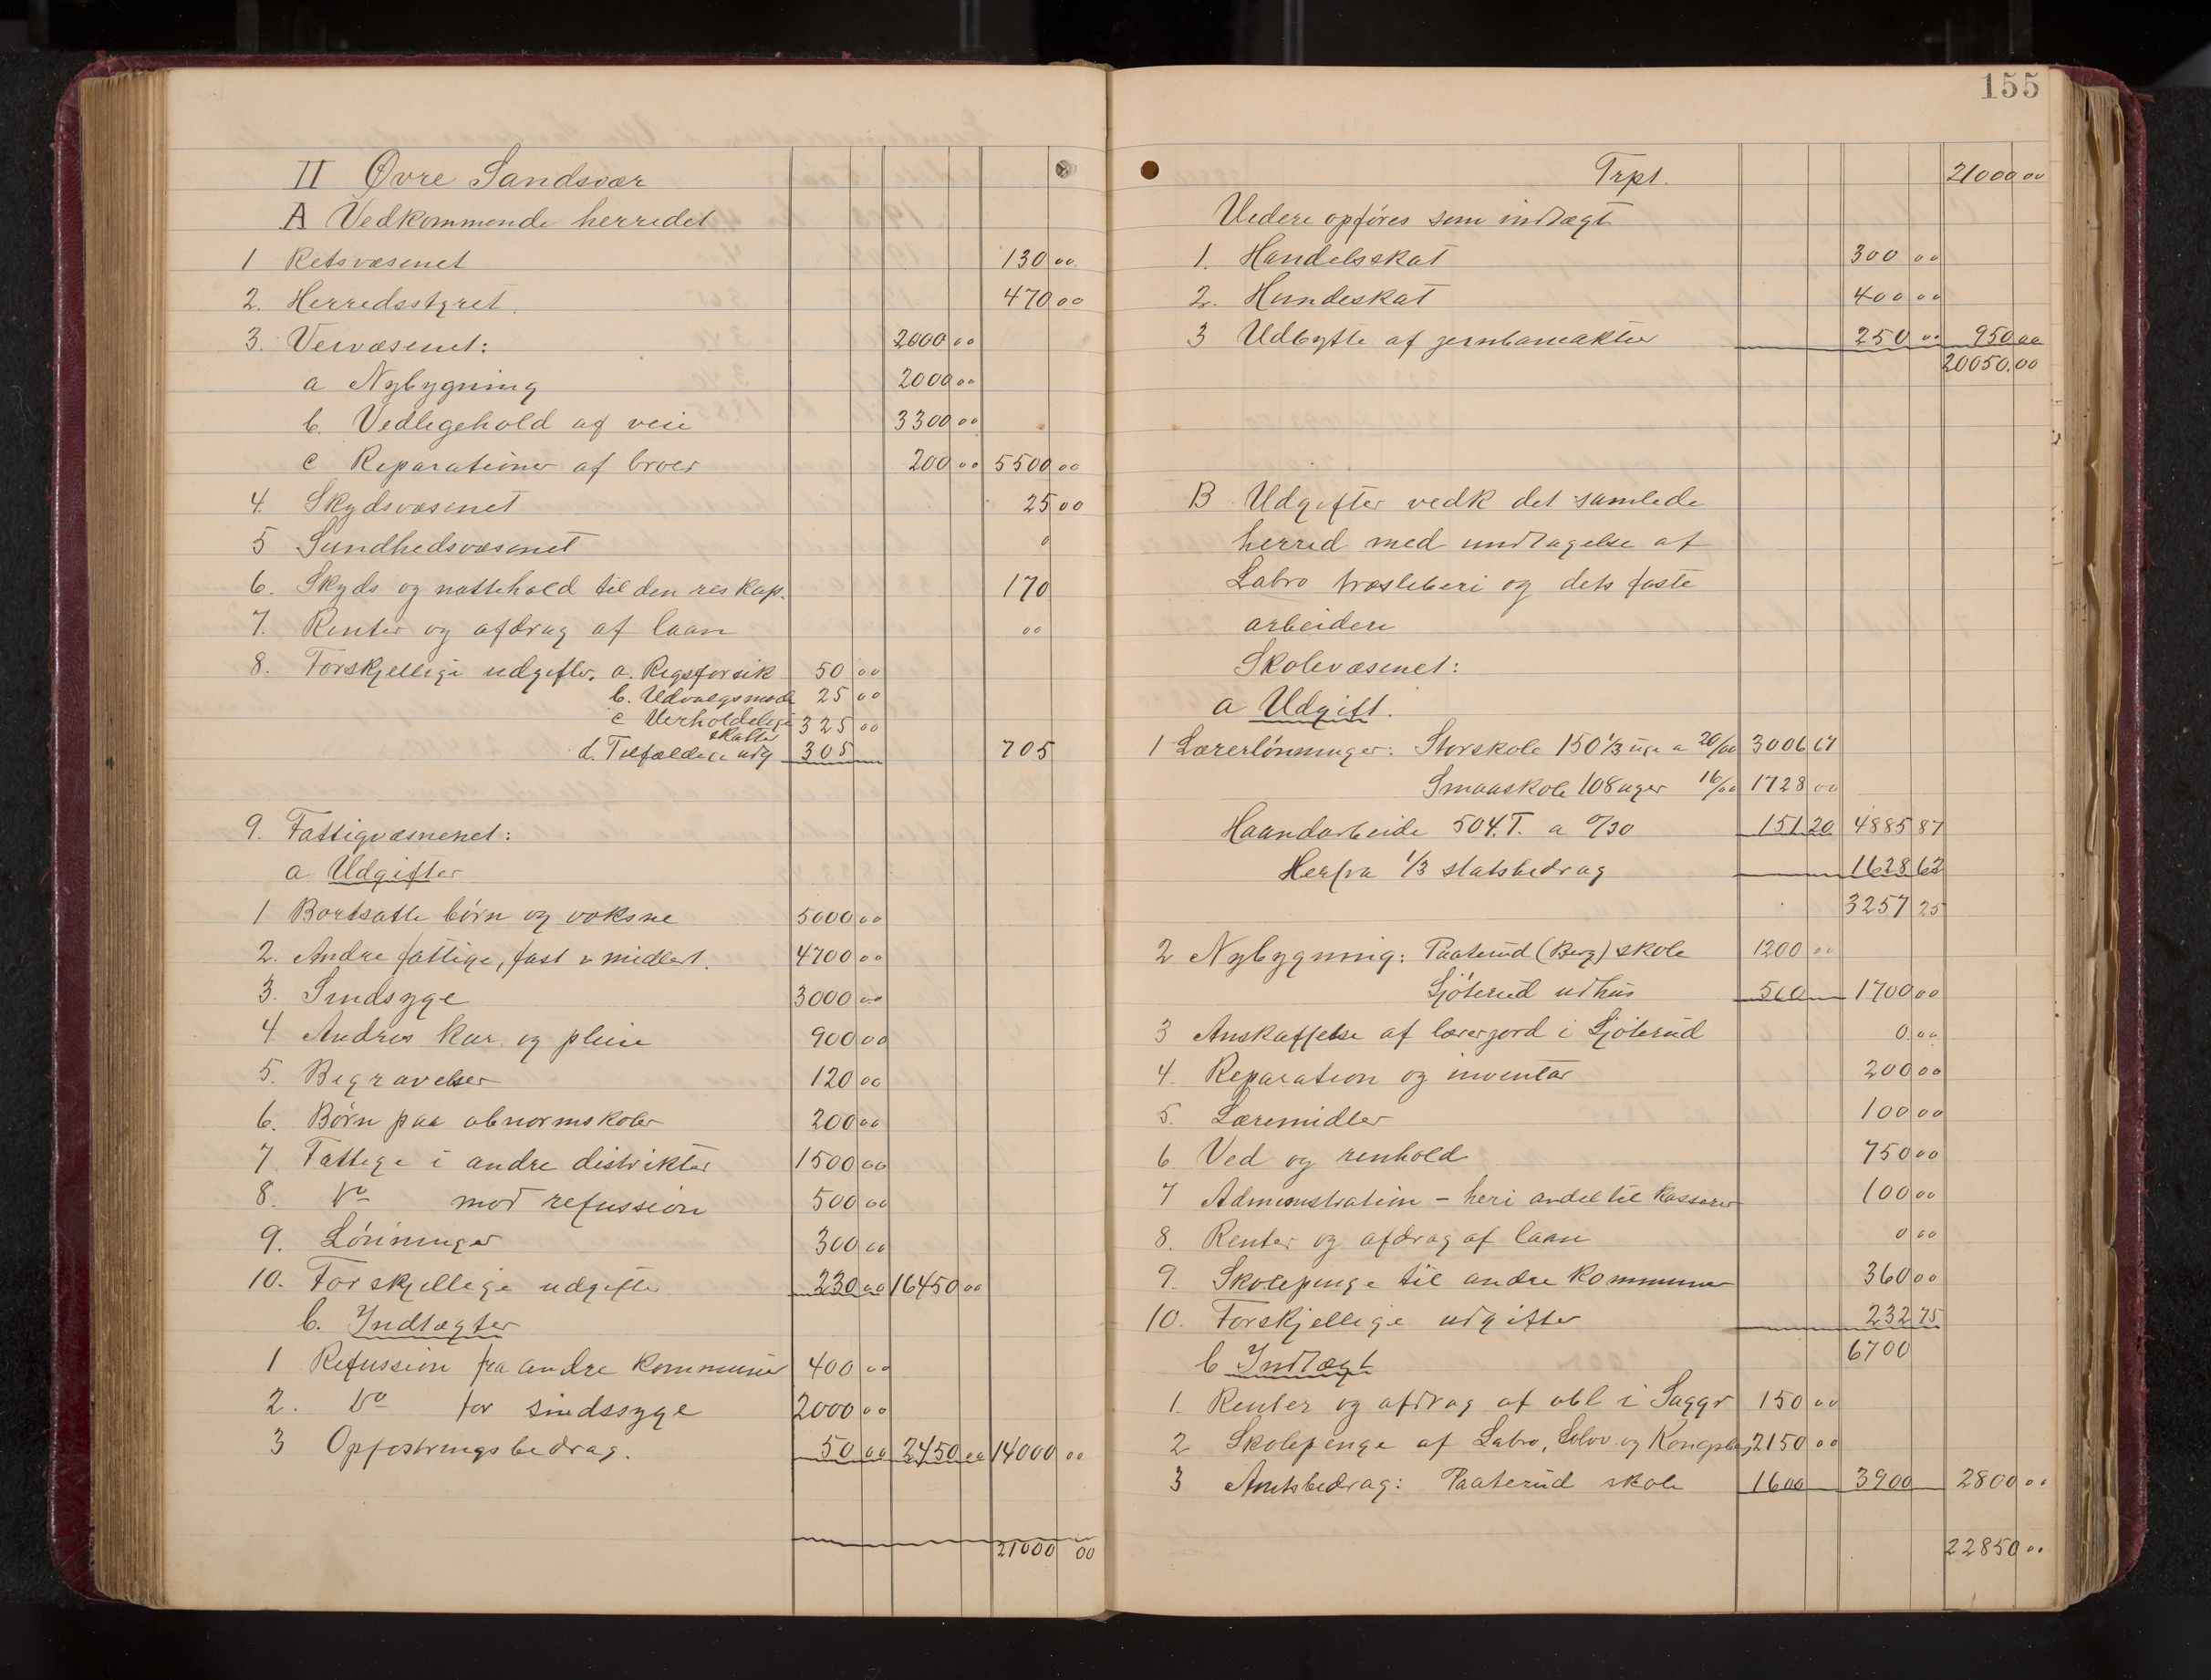 II Øvre Sandsvær
A Vedkommende herredet
1 Retsvæsenet 130 00
2. Herredsstyret. 470 00
3. Veivæsenet: 2000 00
a Nybygning 2000 00
b. Vedligehold af veie 3300 00
c Reparationer af broer 200 00 5500 00
4. Skydsvæsenet 25 00
5 Sundhedsvæsenet 0
6. Skyds og nattehold til den res kap. 170
7. Renter og afdrag af laan 00
8. Forskjellige udgifter. a. Regsforsik 50 00
b. Udvalgsmøde 25 00
c Uerholdelige skatter 325 00
d. Tilfældige udg 305 705
9. Fattigvæsnenet:
a Udgifter
1 Bortsatte børn og voksne 5000 00
2. Andre fattige, fast & midlert. 4700 00
3. Sindsyge 3000 00
4 Andres kur og pleie 900 00
5. Begravelser 120 00
6. Børn paa abnormskoler 200 00
7. Fattige i andre distrikter 1500 00
8. Do mod refussion 500 00
9. Lønninger 300 00
10. Forskjellige udgifter 230 00 16450 00
b. Indtægter
1 Refussion fra andre kommuner 400 00
2. Do for sindssyge 2000 00
3 Opfostringsbedrag. 50 00 2450 00 14000 00
21000 00
155
Trpt. 21000 00
Videre opføres som indtægt
1. Handelsskat 300 00
2. Hundeskat 400 00
3 Udbytte af jernbaneaktier 250 00 950 00
20050.00
B Udgifter vedk det samlede
herred med undtagelse af
Labro træsliberi og dets faste
arbeidere
Skolevæsenet:
a Udgift.
1 Lærerlønninger: Storskole 150 1/3 uge a 20/00 3006 67
Smaaskole 108 uger 16/00 1728 00
Haandarbeide 504 T. a 0/30 151 20 4885 87
Herfra 1/3 statsbedrag 1628 62
3257 25
2 Nybygning: Paaterud (Berg) skole 1200 00
Sjøterud udhus 500 1700 00
3 Anskaffelse af lærerjord i Sjøterud 0.00
4. Reparation og inventar 200 00
5. Læremidler 100 00
6 Ved og renhold 750 00
7 Administration - heri andel til kasserer 100 00
8. Renter og afdrag af laan 0 00
9. Skolepenge til andre kommuner 360 00
10. Forskjellige udgifter 232 75
6700
b Indtægt
1. Renter og afdrag af obl i Saggr 150 00
2 Skolepenge af Labro, og Kongsberg 2150 00
3 Amtsbedrag: Paaterud skole 1600 3900 2800 00
22850 00